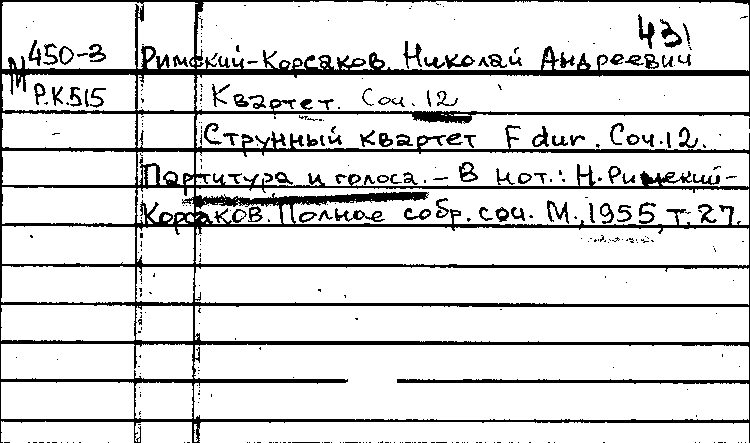 431
М 450-3 Римский-Корсаков, Николай Андреевич
Р.К.515 Квартет. Соч. 12
Струнный квартет F dur. Соч.12.
Партитура и голоса. – В нот.: Н. Римский-
Корсаков. Полное собр. соч. М., 1955, т. 27.